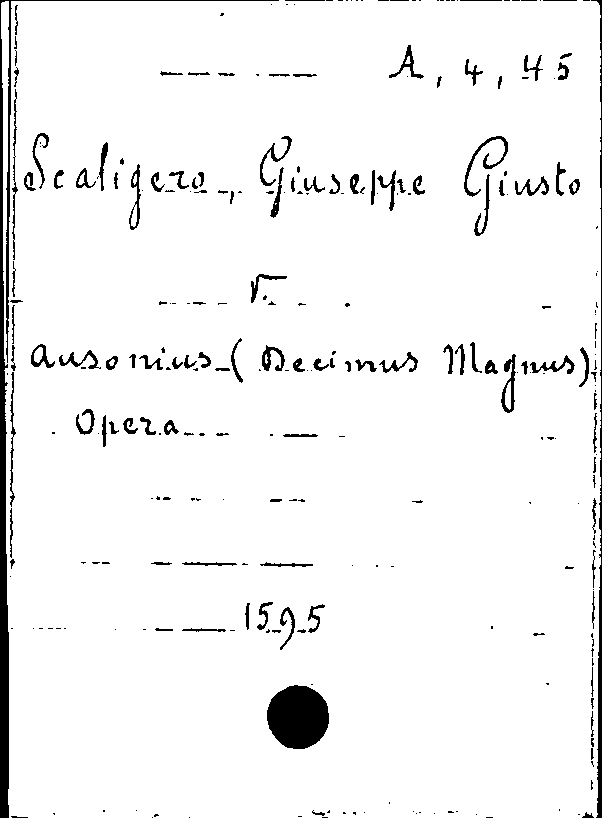 A, 4, 45
Scaligero, Giuseppe Giusto
V.
Ausonius (Decimus Magnus)
Opera
1595